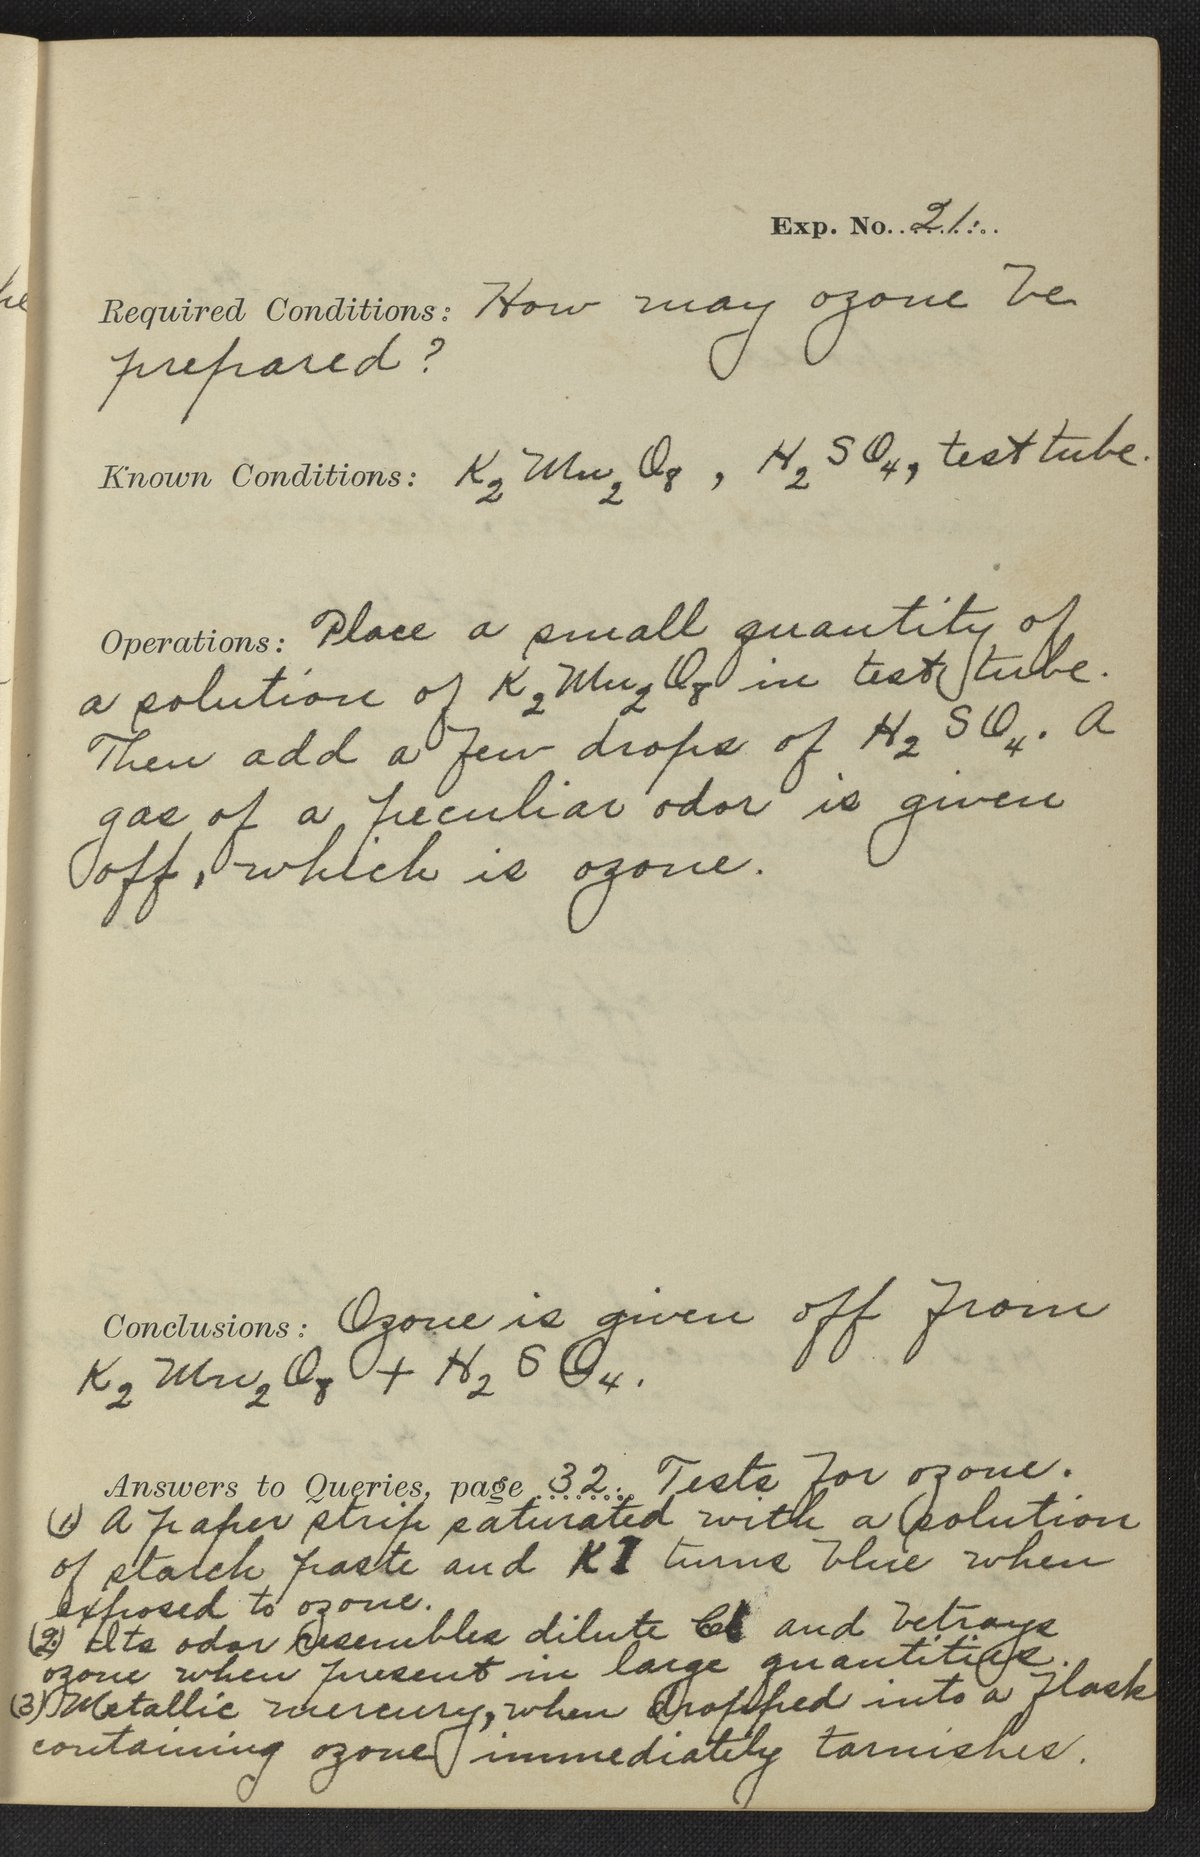 Exp. No. 21.
he
Required Conditions: How may ozone be
prepared?
Known Conditions: K2Mn2O8, H2SO4, test tube.
Operations: Place a small quantity of
a solution of K2Mn2O8 in test tube.
Then add a few drops of H2SO4. A
gas of a peculiar odor is given
off, which is ozone.
Conclusions: Ozone is given off from
K2Mn2O8 + H2SO4.
Answers to Queries, page 32. Tests for ozone.
(1.) A paper strip saturated with a solution
of starch paste and KI turns blue when
exposed to ozone.
(2.) Its odor resembles dilute Cl and betrays
ozone when present in large quantities.
(3) Metallic mercury, when dropped into a flask
containing ozone immediately tarnishes.